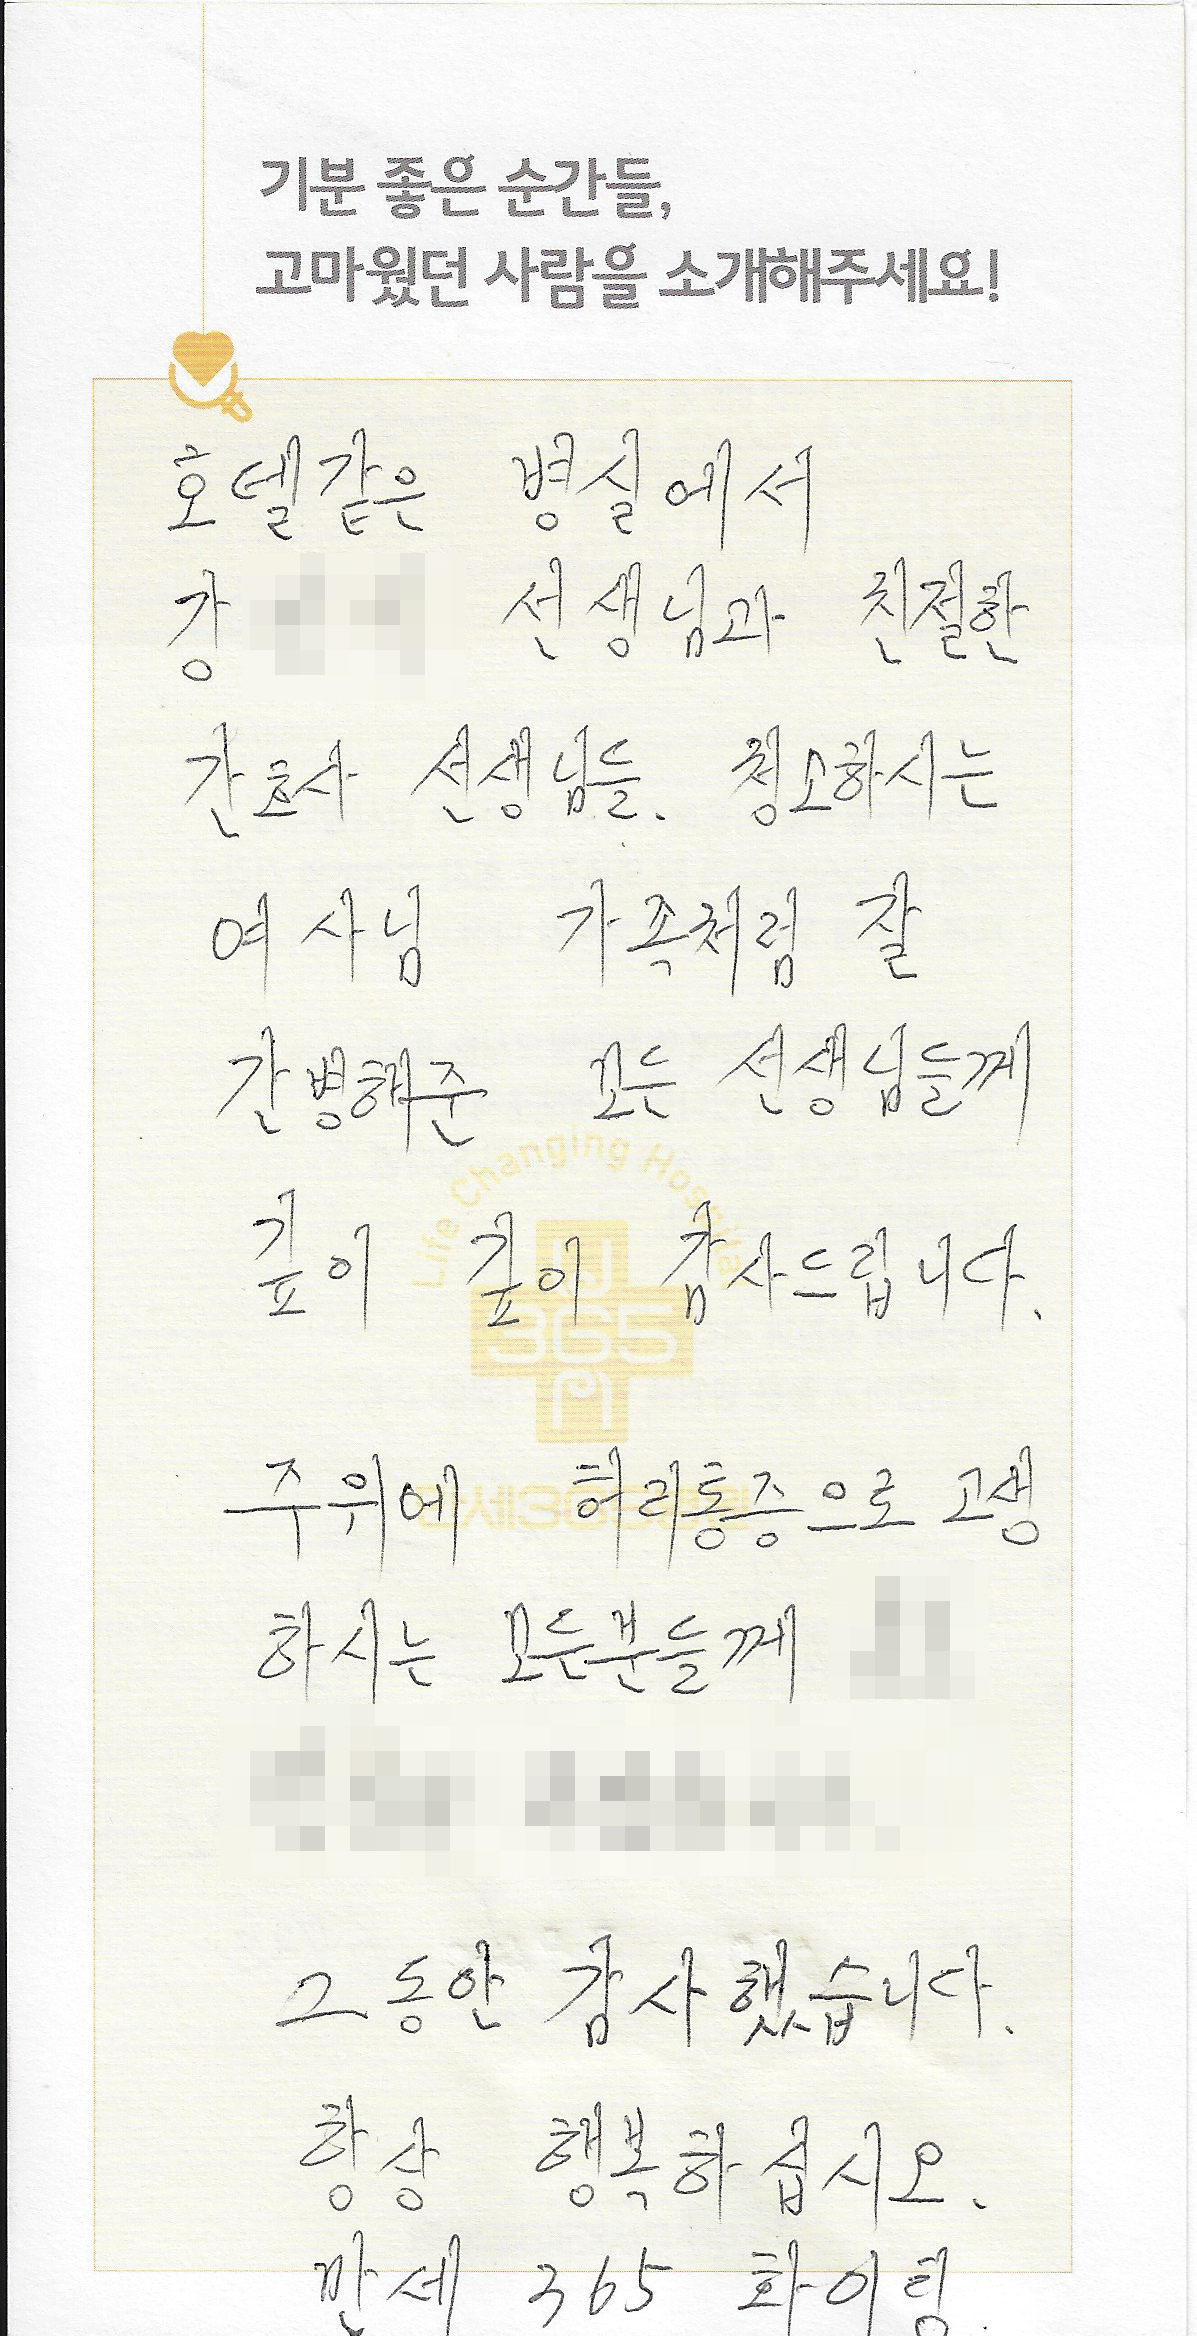 기분 좋은 순간들,
고마웠던 사람을 소개해주세요!
호텔같은 병실에서
강 선생님과 친절한
간호사 선생님들. 청소하시는
여사님 가족처럼 잘
간병해준 모든 선생님들께
Life Changing Hospital
깊이 깊이 감사드립니다.
365
주위에 허리통증으로 고생
하시는 모든분들께
그동안 감사했습니다.
항상 행복하십시오.
만세 365 화이팅